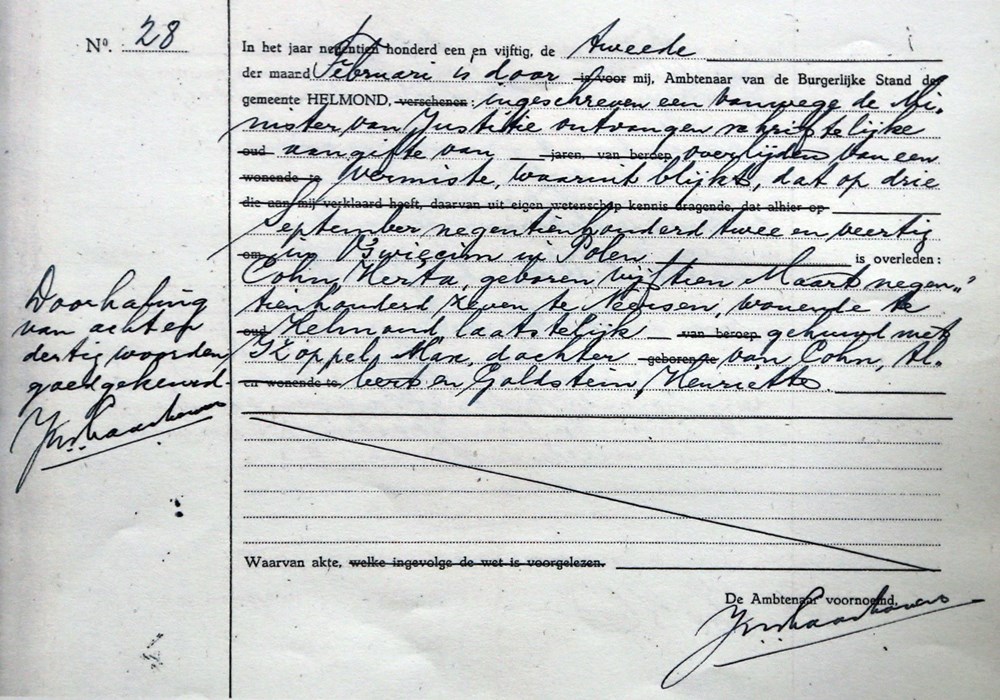 Nº. 28
In het jaar negentien honderd een en vijftig, de tweede
der maand Februari is door is voor mij, Ambtenaar van de Burgerlijke Stand der
gemeente HELMOND, verschenen: ingeschreven een vanwege de Mi-
nister van Justitie ontvangen schriftelijke
oud aangifte van jaren, van beroep overlijden van een
wonende te vermiste, waaruit blijkt, dat op drie
die aan mij verklaard heeft, daarvan uit eigen wetenschap kennis dragende, dat alhier op
September negentienhonderd twee en veertig
om in Oswiecim in Polen is overleden:
Cohn, Herta, geboren vijftien Maart negen-
tienhonderd zeven te Meusen, wonende te
oud Helmond, laatstelijk van beroep gehuwd met
Koppel, Max, dochter geboren te van Cohn, Al-
en wonende te bert en Goldstein, Henriette
Doorhaling
van acht en
dertig woorden
goedgekeurd.
Waarvan akte, welke ingevolge de wet is voorgelezen.
De Ambtenaar voornoemd,